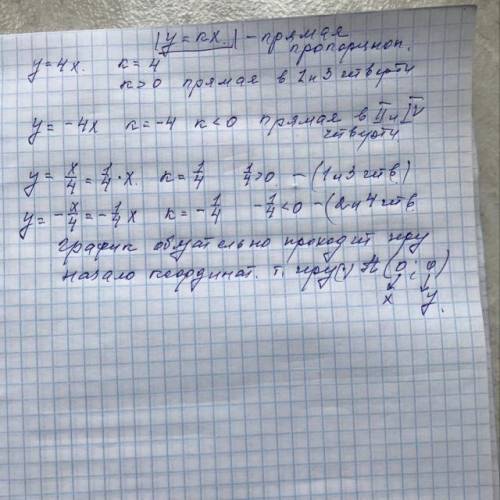 |y = kx.| - прямая
пропорцион.
y = 4x. k = 4
k > 0 прямая в 1 и 3 четверти
y = -4x k = -4 k < 0 прямая в II и IV
четверти
y = x/4 = 1/4 · x. k = 1/4 1/4 > 0 - (1 и 3 четв.)
y = -x/4 = -1/4 x k = -1/4 -1/4 < 0 - (2 и 4 четв.
График обязательно проходит чру
начало координат. т. чру (·) A (0; 0)
x y.